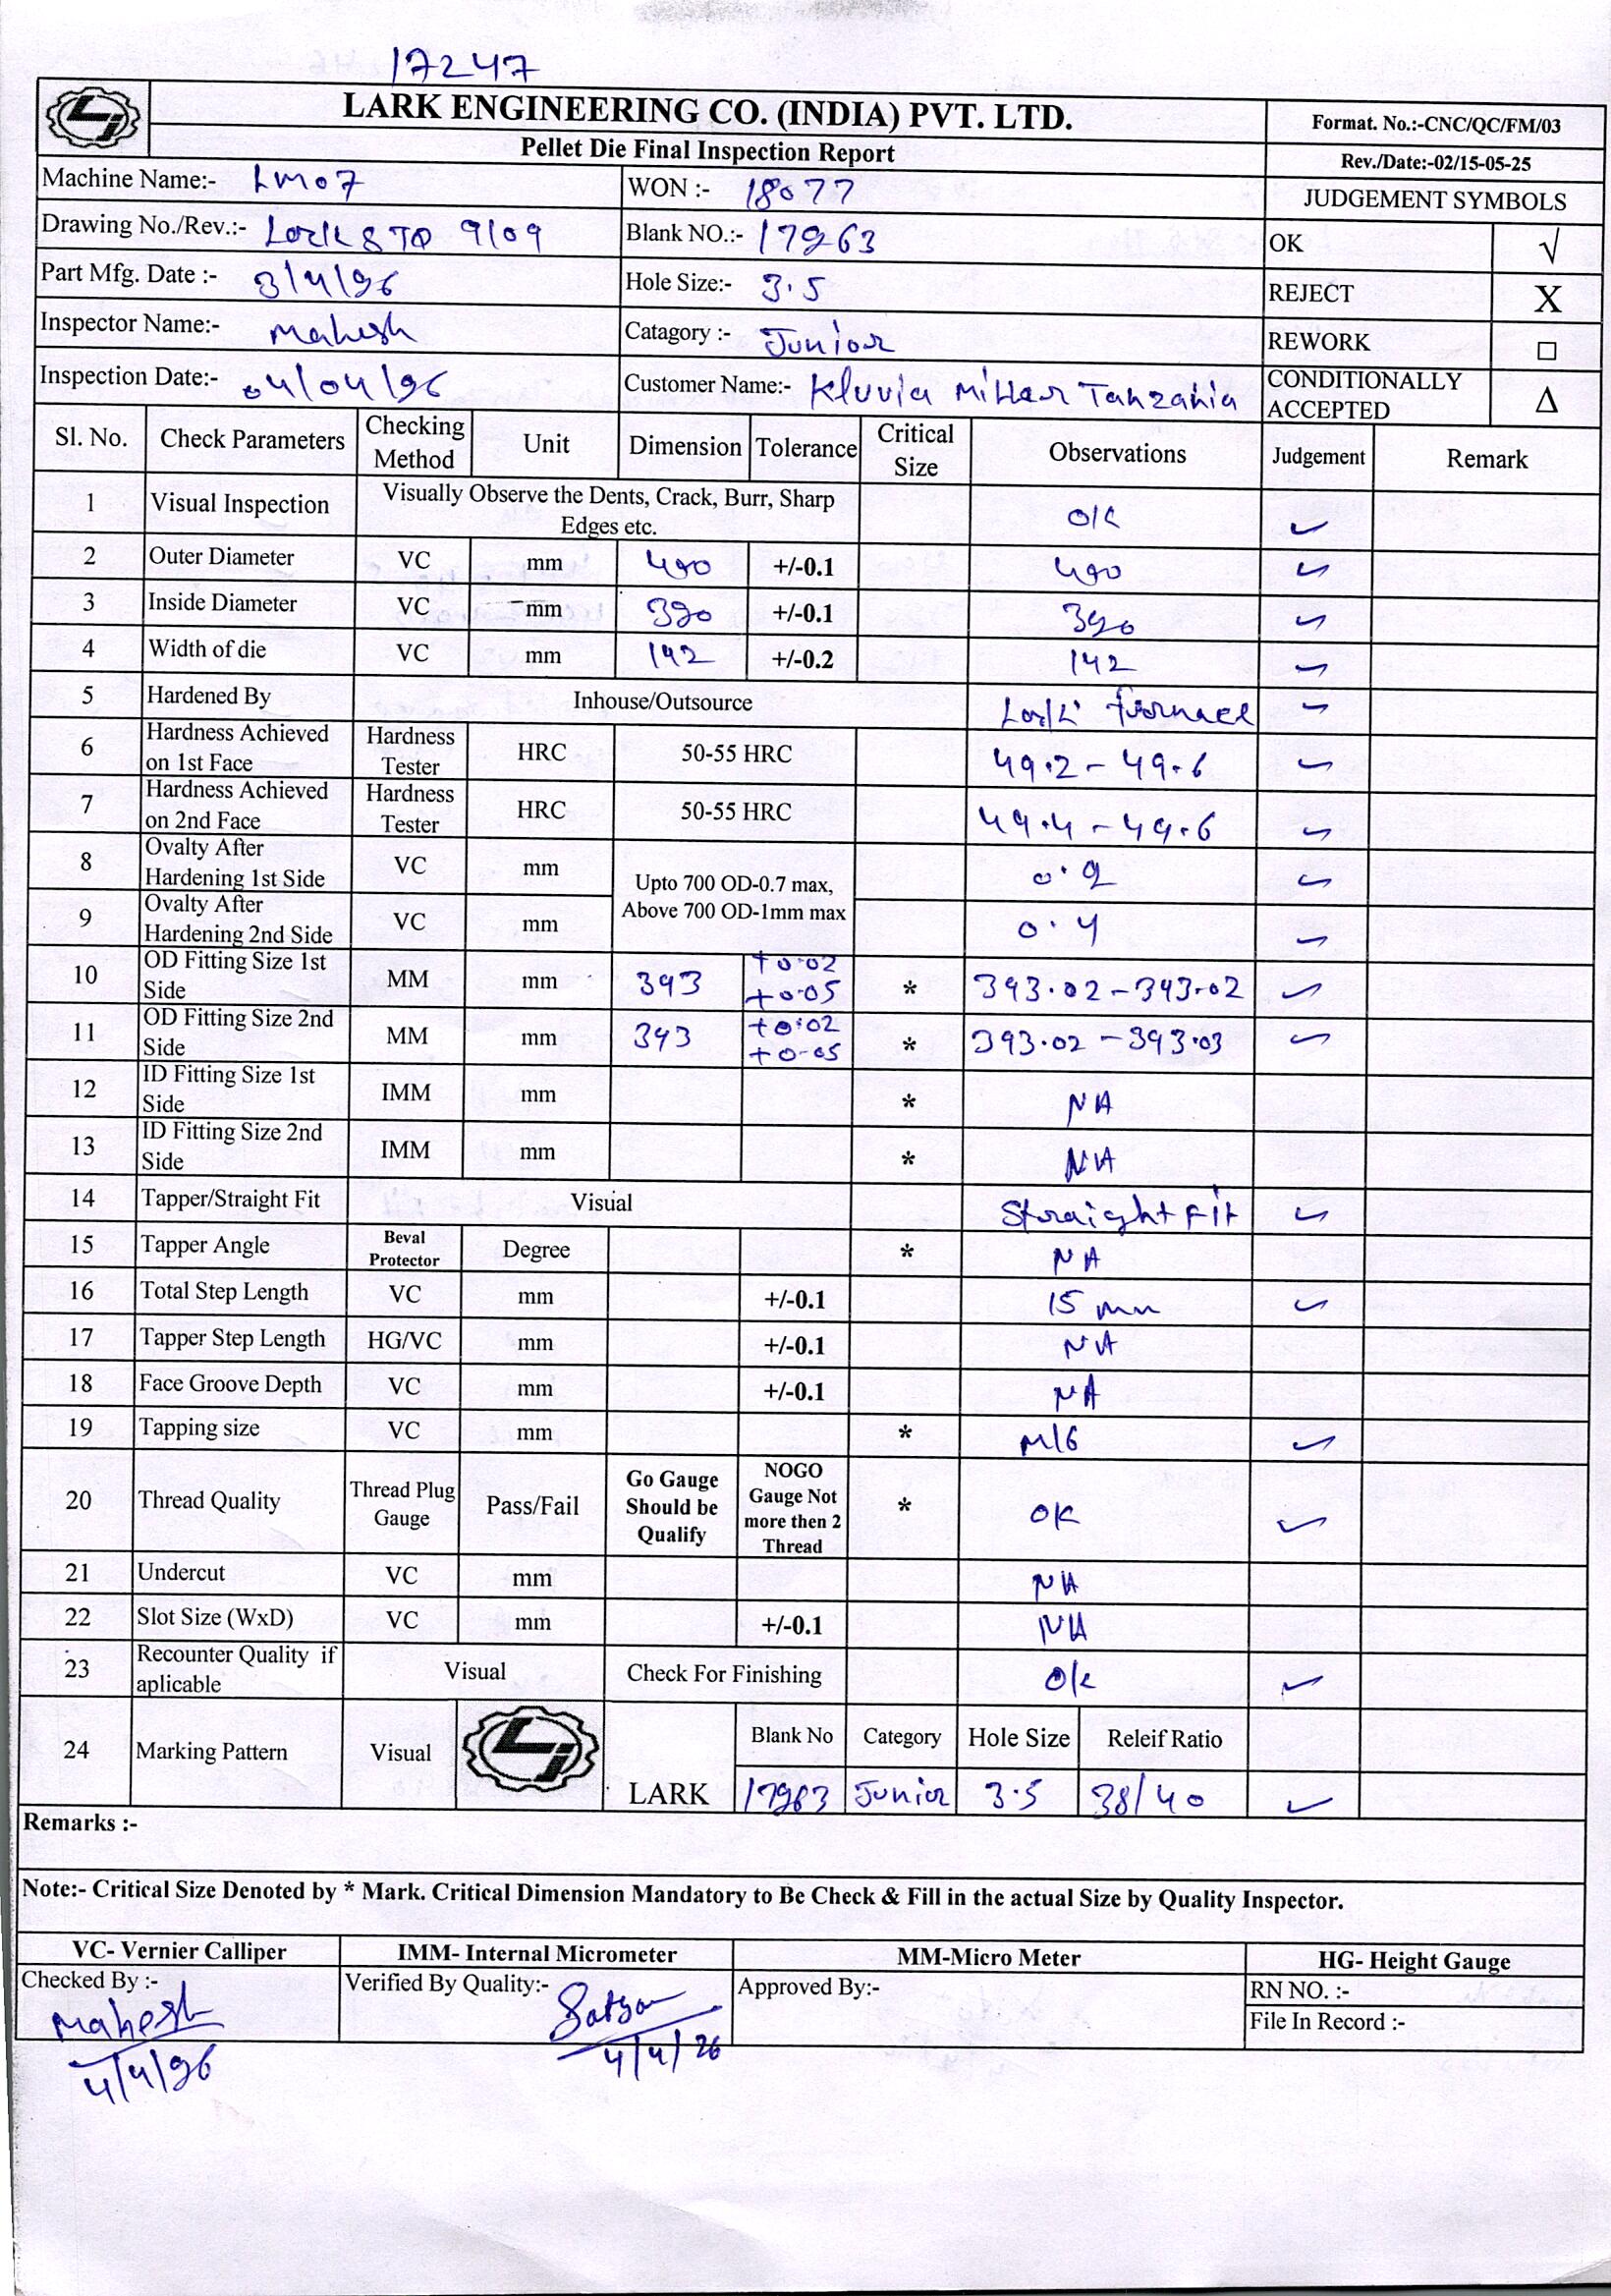 17247
LARK ENGINEERING CO. (INDIA) PVT. LTD.
Pellet Die Final Inspection Report
Format. No.:-CNC/QC/FM/03
Rev./Date:-02/15-05-25
Machine Name:- LM07
WON :- 18077
JUDGEMENT SYMBOLS
Drawing No./Rev.:- Lark STD 9/09
Blank NO.:- 17263
OK √
Part Mfg. Date :- 3/4/26
Hole Size:- 3.5
REJECT X
Inspector Name:- Mahesh
Catagory :- Junior
REWORK □
Inspection Date:- 04/04/26
Customer Name:- Tanzania
CONDITIONALLY ACCEPTED Δ
Sl. No. Check Parameters Checking Method Unit Dimension Tolerance Critical Size Observations Judgement Remark
1 Visual Inspection Visually Observe the Dents, Crack, Burr, Sharp Edges etc. OK ✓
2 Outer Diameter VC mm 490 +/-0.1 490 ✓
3 Inside Diameter VC mm 390 +/-0.1 390 ✓
4 Width of die VC mm 142 +/-0.2 142 ✓
5 Hardened By Inhouse/Outsource ✓
6 Hardness Achieved on 1st Face Hardness Tester HRC 50-55 HRC 49.2 - 49.6 ✓
7 Hardness Achieved on 2nd Face Hardness Tester HRC 50-55 HRC 49.4 - 49.6 ✓
8 Ovalty After Hardening 1st Side VC mm Upto 700 OD-0.7 max, Above 700 OD-1mm max ✓
9 Ovalty After Hardening 2nd Side VC mm 0.4 ✓
10 OD Fitting Size 1st Side MM mm 393 +0.02 +0.05 * 393.02-393.02 ✓
11 OD Fitting Size 2nd Side MM mm 393 +0.02 +0.05 * 393.02-393.03 ✓
12 ID Fitting Size 1st Side IMM mm * NA
13 ID Fitting Size 2nd Side IMM mm * NA
14 Tapper/Straight Fit Visual Straight Fit ✓
15 Tapper Angle Beval Protector Degree * NA
16 Total Step Length VC mm +/-0.1 15 mm ✓
17 Tapper Step Length HG/VC mm +/-0.1 NA
18 Face Groove Depth VC mm +/-0.1 NA
19 Tapping size VC mm * M16 ✓
20 Thread Quality Thread Plug Gauge Pass/Fail Go Gauge Should be Qualify NOGO Gauge Not more then 2 Thread * OK ✓
21 Undercut VC mm NA
22 Slot Size (WxD) VC mm +/-0.1 NA
23 Recounter Quality if aplicable Visual Check For Finishing OK ✓
24 Marking Pattern Visual LARK Blank No Category Hole Size Releif Ratio
17263 Junior 3.5 38/40 ✓
Remarks :-
Note:- Critical Size Denoted by * Mark. Critical Dimension Mandatory to Be Check & Fill in the actual Size by Quality Inspector.
VC- Vernier Calliper IMM- Internal Micrometer MM-Micro Meter HG- Height Gauge
Checked By :- Mahesh 4/4/26
Verified By Quality:- 4/4/26
Approved By:-
RN NO. :-
File In Record :-